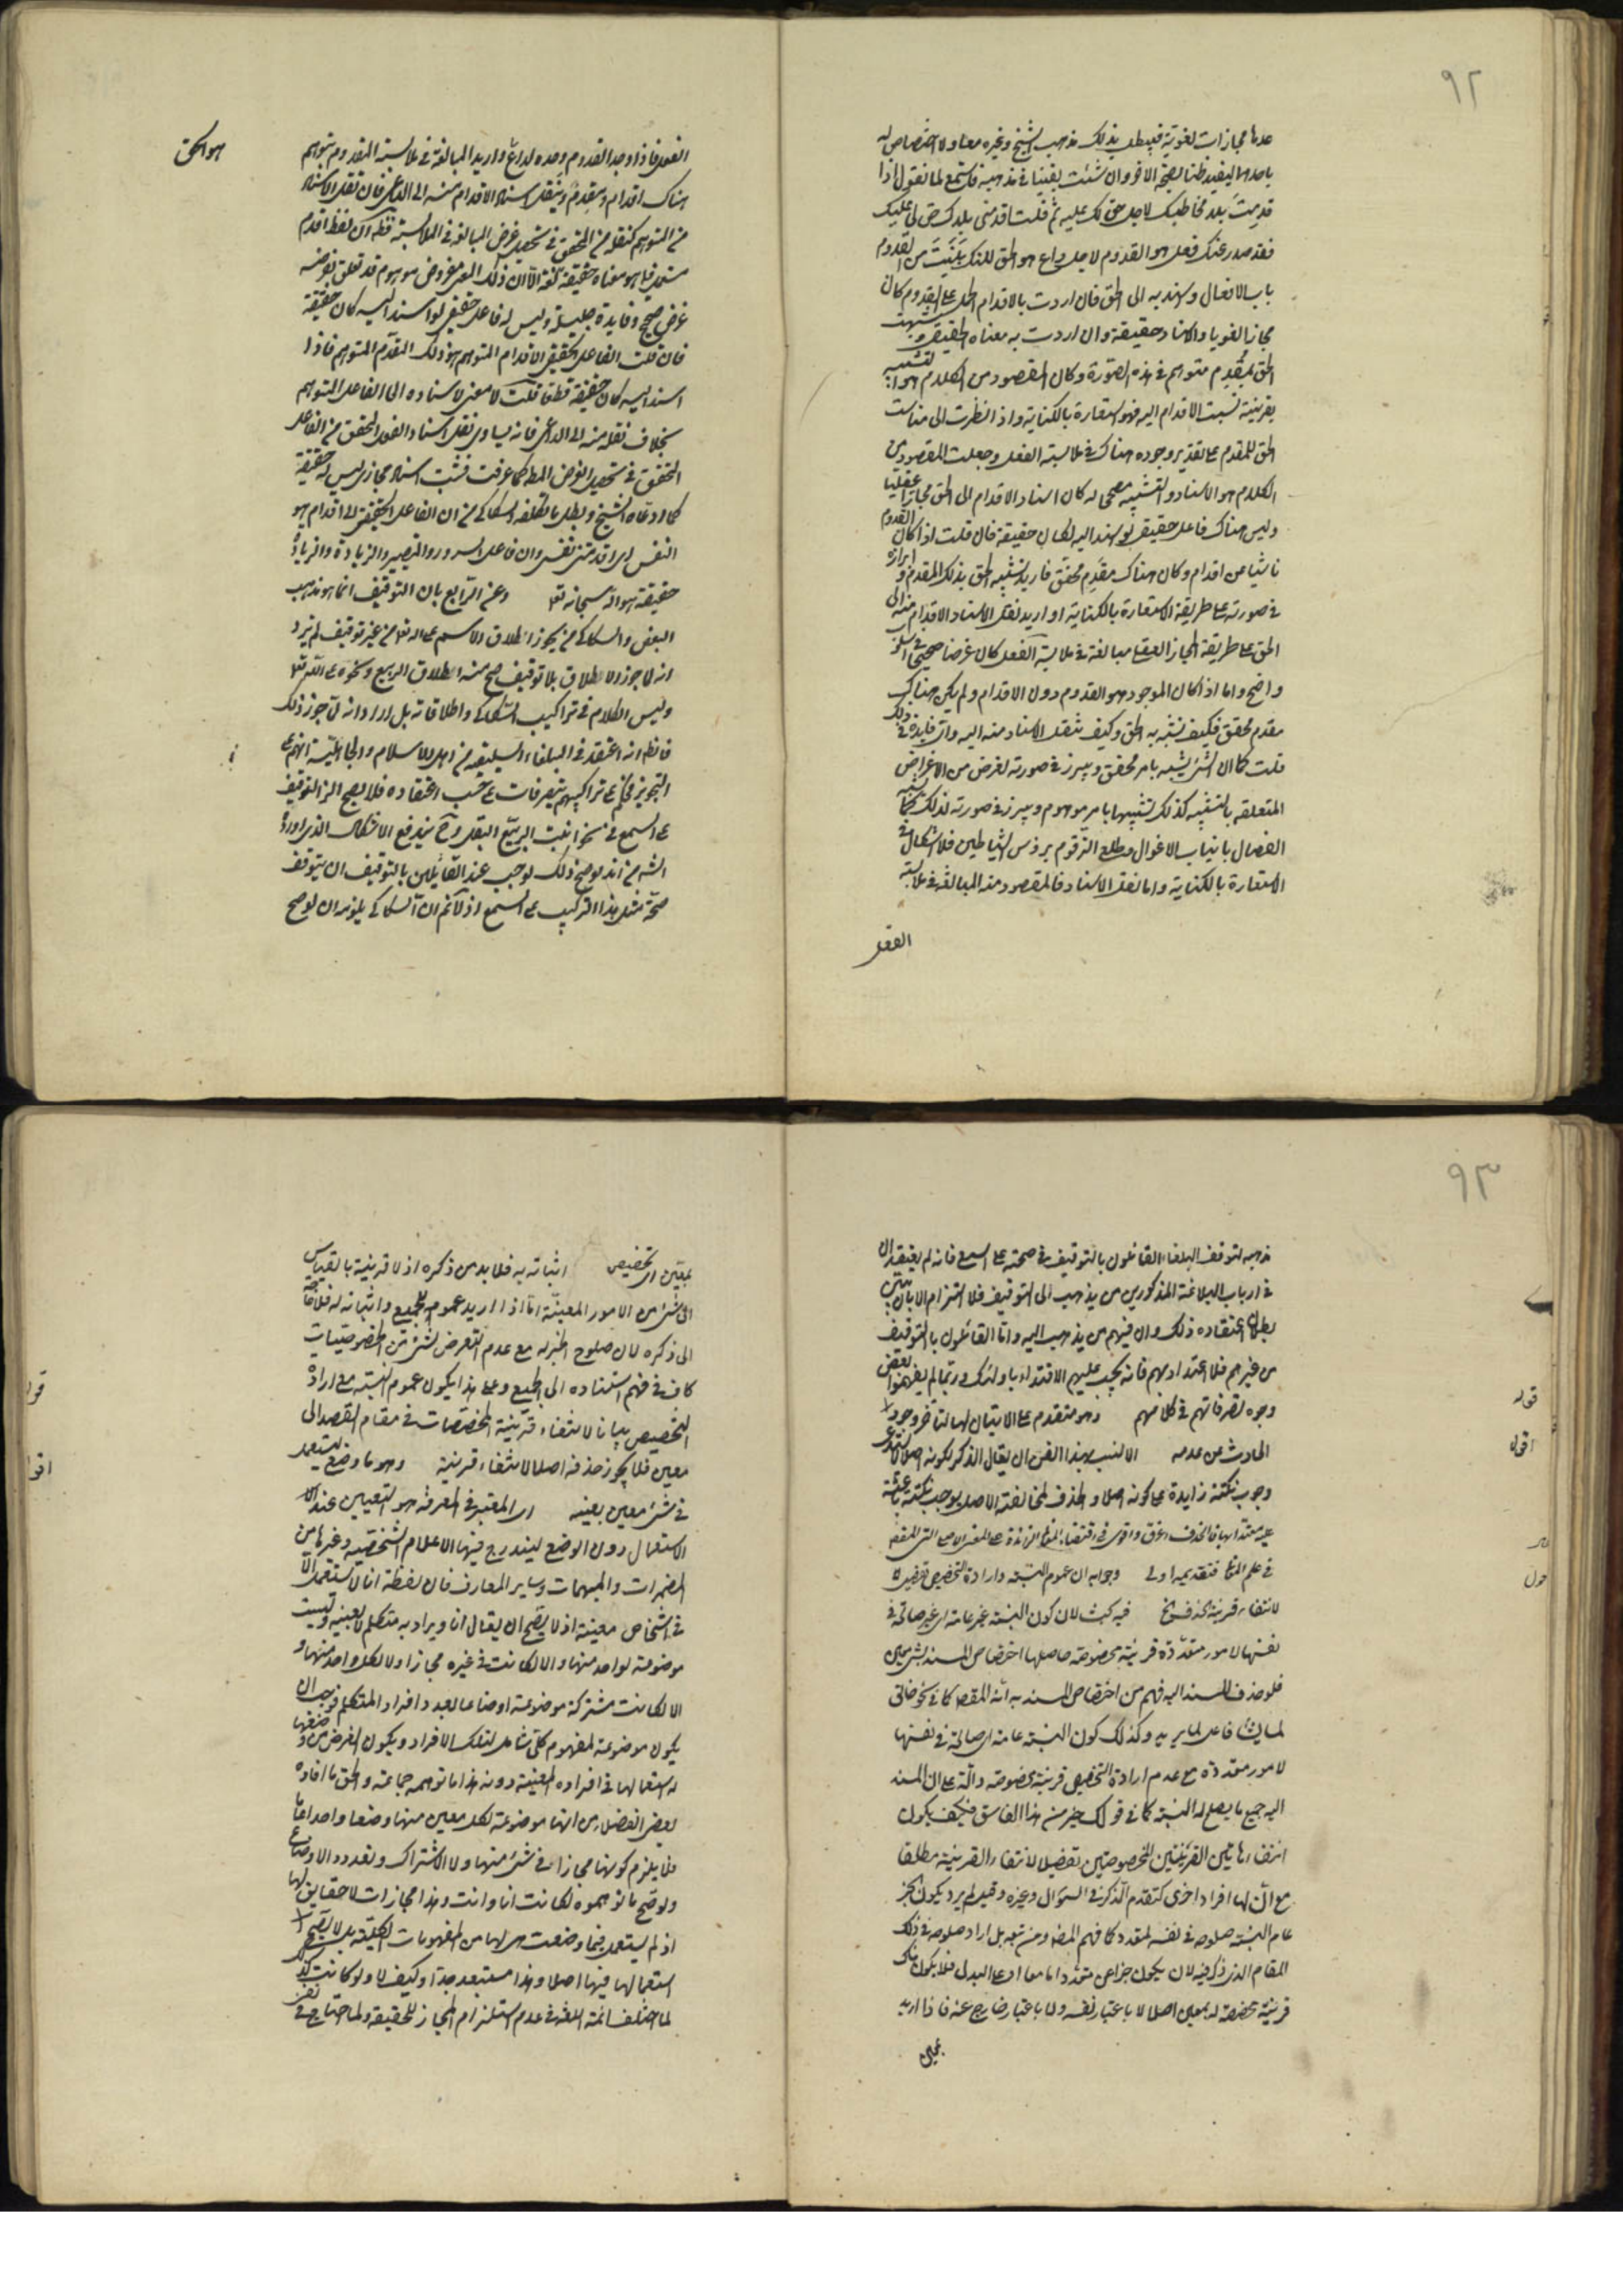 ٩٢
عدها مجازات لغوية فيبطل بذلك مذهب الشيخ وغيره معا ولا اختصاص له
باحدهما ليفيد ظنا بصحة الآخر وان شئت يقينا في مذهبه فاستمع لما نقول اذا
قدمت بلد مخاطبك لاجل حق لك عليه ثم قلت اقدمني بلدك حق لي عليك
فقد صدر عنك فعل هو القدوم لاجل داع هو الحق لكنك بنيت من القدوم
باب الافعال واسند به الى الحق فان اردت بالاقدام الحمل على القدوم كان
مجازا لغويا والاسناد حقيقة وان اردت به معناه الحقيقي وشبهت
الحق بمقدم متوهم في هذه الصورة وكان المقصود من الكلام هو التشبيه
بقرينة نسبت الاقدام اليه فهو استعارة بالكناية واذا نظرت الى مناسبت
الحق للمقدم على تقدير وجوده هناك في ملابسة الفعل وجعلت المقصود من
الكلام هو الاسناد والتشبيه مصححا له كان اسناد الاقدام الى الحق مجازا عقليا
وليس هناك فاعل حقيقي لو اسند اليه لكان حقيقة فان قلت اذا كان القدوم
ناشيا عن اقدام وكان هناك مقدم محقق فاريد تشبيه الحق بذلك المقدم وابرازه
في صورته على طريقة الاستعارة بالكناية او اريد نقل الاسناد الاقدام منه الى
الحق على طريقة المجاز العقلي مبالغة في ملابسة الفعل كان غرضا صحيحا
واضح واما اذا كان الموجود هو القدوم دون الاقدام ولم يكن هناك
مقدم محقق فكيف تشبه به الحق وكيف تنقل الاسناد منه اليه واي فايدة في ذلك
قلت كما ان الشئ يشبه بامر محقق ويبرز في صورته لغرض من الاغراض
المتعلقه بالتشبيه كذلك تشبيها بامر موهوم ويبرز في صورته لذلك
النصال بانياب الاغوال وطلع الزقوم برؤس الشياطين فلا اشكال في
الاستعارة بالكناية واما نقل الاسناد فالمقصود منه المبالغة في ملابسة
الفعل
الفعل فاذا وجد القدوم وحده لداع واريد المبالغة في ملابسته للقدوم يتوهم
هناك اقدام ومقدم وينقل اسناد الاقدام منه الى الداعي فان نقل الاسناد
من المتوهم كنقله من المحقق في تحصيل غرض المبالغة في الملابسة فظهر ان لفظ اقدم
مستعمل فيما هو معناه حقيقة لغة الا ان ذلك المعنى مفروض موهوم قد تعلق بفرضه
غرض صحيح وفايدة جليلة وليس له فاعل حقيقي لو اسند اليه كان حقيقة
فان قلت الفاعل الحقيقي للاقدام المتوهم هو ذلك المقدم المتوهم فاذا
اسند اليه كان حقيقة قطعا قلت لا معنى لاسناده الى الفاعل المتوهم
بخلاف نقله منه الى الداعي فانه يساوي نقل اسناد الفعل المحقق من الفاعل
المحقق في تحصيل الغرض المط كما عرفت فثبت اسناد مجازي ليس له حقيقة
كما ادعاه الشيخ وبطل ما تكلفه السكاكي من ان الفاعل الحقيقي لاقدام هو
النفس اي اقدمتني نفسي وان فاعل السرور والتصيير والزيادة والزيادة
حقيقة هو الله سبحانه تع وعن الرابع بان التوقيف انما هو مذهب
البعض والسكاكي من يجوز اطلاق الاسم على الله تع من غير توقيف لم يرد
انه لا جوز الاطلاق بلا توقيف صح منه اطلاق الربيع ونحوه على الله تع
وليس الكلام في تراكيب السكاكي واطلاقاته بل اراد انه لما جوز ذلك
فانما انه اعتقد في البلغاء السليقيه من اهل الاسلام والجاهلية انهم على
التجويز فحكم على تراكيبهم بتصرفات على حسب اعتقاده فلا يصح الزام التوقيف
على السمع في نحو انبت الربيع البقل وح يندفع الاشكال الذي اورده
الشه من انه لو صح ذلك لوجب عند القائلين بالتوقيف ان يتوقف
صحة مثل هذا التركيب على السمع اذ لا تم ان السكاكي يلزمه ان لو صح
هو الحق
٩٣
مذهبه لتوقف البلغاء القائلون بالتوقيف في صحته على السمع فانه لم يعتقد ان
في ارباب البلاغة المذكورين من يذهب الى التوقيف فلا التزام الا بان يتبين
بطلان اعتقاده ذلك وان فيهم من يذهب اليه واما القائلون بالتوقيف
من غيرهم فلا اعتداد بهم فانه يجب عليهم الاقتداء باولئك وربما لم يفهموا بعض
وجوه تصرفاتهم في كلامهم وهو متقدم على الاتيان لها لتاخر وجود
الحادث عن عدمه الانسب بهذا الفن ان يقال الذكر لكونه اصلا
وجوب نكتة زايدة على كونه اصلا والحذف لمخالفته الاصل يوجب نكتة باعثة
في علم المعا فتقديمه اولى وجوابه ان عموم النسبة وارادة التخصيص تفصيل
لانتفاء قرينة الحذف الخ فيه بحث لان كون النسبة غير عامة اي غير صالحة في
نفسها لامور متعددة قرينة مخصوصة حاصلها اختصاص المسند بشئ معين
فلو حذف المسند اليه فهم من اختصاص المسند به انه المقص كما في نحو خالق
لما يشاء فاعل لما يريد وكذلك كون النسبة عامة اي صالحة في نفسها
لامور متعددة مع عدم ارادة التخصيص قرينة مخصوصة دالة على ان المسند
اليه جميع ما يصلح له النسبة كما في قولك خير من هذا الفاسق فكيف يكون
انتفاء هاتين القرينتين المخصوصتين تفصيلا لانتفاء القرينة مطلقا
مع ان لها افرادا اخرى كتقدم الذكر في السؤال وغيره وقيل لم يرد بكون الخبر
عام النسبة صلوحه في نفسه لمتعدد كما فهم المص ومن تبعه بل اراد صلوحه في ذلك
المقام الذي ذكر فيه لان يكون خبرا عن متعدد اما معا او على البدل فلا يكون هناك
قرينة مخصصة له بمعين اصلا لا باعتبار نفسه ولا باعتبار خارج عنه فاذا اريد
بمعين
قوله
اقول
بمعين اى تخصيص اثباته به فلا بد من ذكره اذ لا قرينة بالقياس
الى شئ من الامور المعينة اما اذا اريد عموم الجميع واثباته له فلا حاجة
الى ذكره لان صلوح الخبر له مع عدم التعرض لشئ من الخصوصيات
كاف في فهم استناده الى الجميع وعلى هذا يكون عموم النسبة مع ارادة
التخصيص بيانا لانتفاء قرينة المخصصات في مقام القصد الى
معين فلا يجوز حذفه اصلا لانتفاء قرينة وهو ما وضع ليستعمل
في شئ معين بعينه اى المعتبر في المعرفة هو التعيين عند
الاستعمال دون الوضع ليندرج فيها الاعلام الشخصية وغيرها من
المضمرات والمبهمات وساير المعارف فان لفظة انا لا تستعمل الا
في اشخاص معينة اذ لا يصح ان يقال انا ويراد به متكلم لا بعينه وليست
موضوعة لواحد منها والا لكانت في غيره مجازا ولا لكل واحد منها و
الا لكانت مشتركة موضوعة اوضاعا بعدد افراد المتكلم فوجب ان
يكون موضوعة لمفهوم كلي شامل لتلك الافراد ويكون الغرض من وضعها
له استعمالها في افراده المعينة دونه هذا ما توهمه جماعة والحق ما افاده
بعض الفضلاء من انها موضوعة لكل معين منها وضعا واحدا عاما
فلا يلزم كونها مجازا في شئ منها ولا الاشتراك وتعدد الاوضاع
ولو صح ما توهموه لكانت انا وانت وهذا مجازات لا حقايق لها
اذ لم يستعمل فيما وضعت هي لها من المفهومات الكلية بل لا يصح
استعمالها فيها اصلا وهذا مستبعد جدا وكيف لا ولو كانت كذلك
لما اختلف ائمة اللغة في عدم استلزام المجاز للحقيقة ولما احتاج في